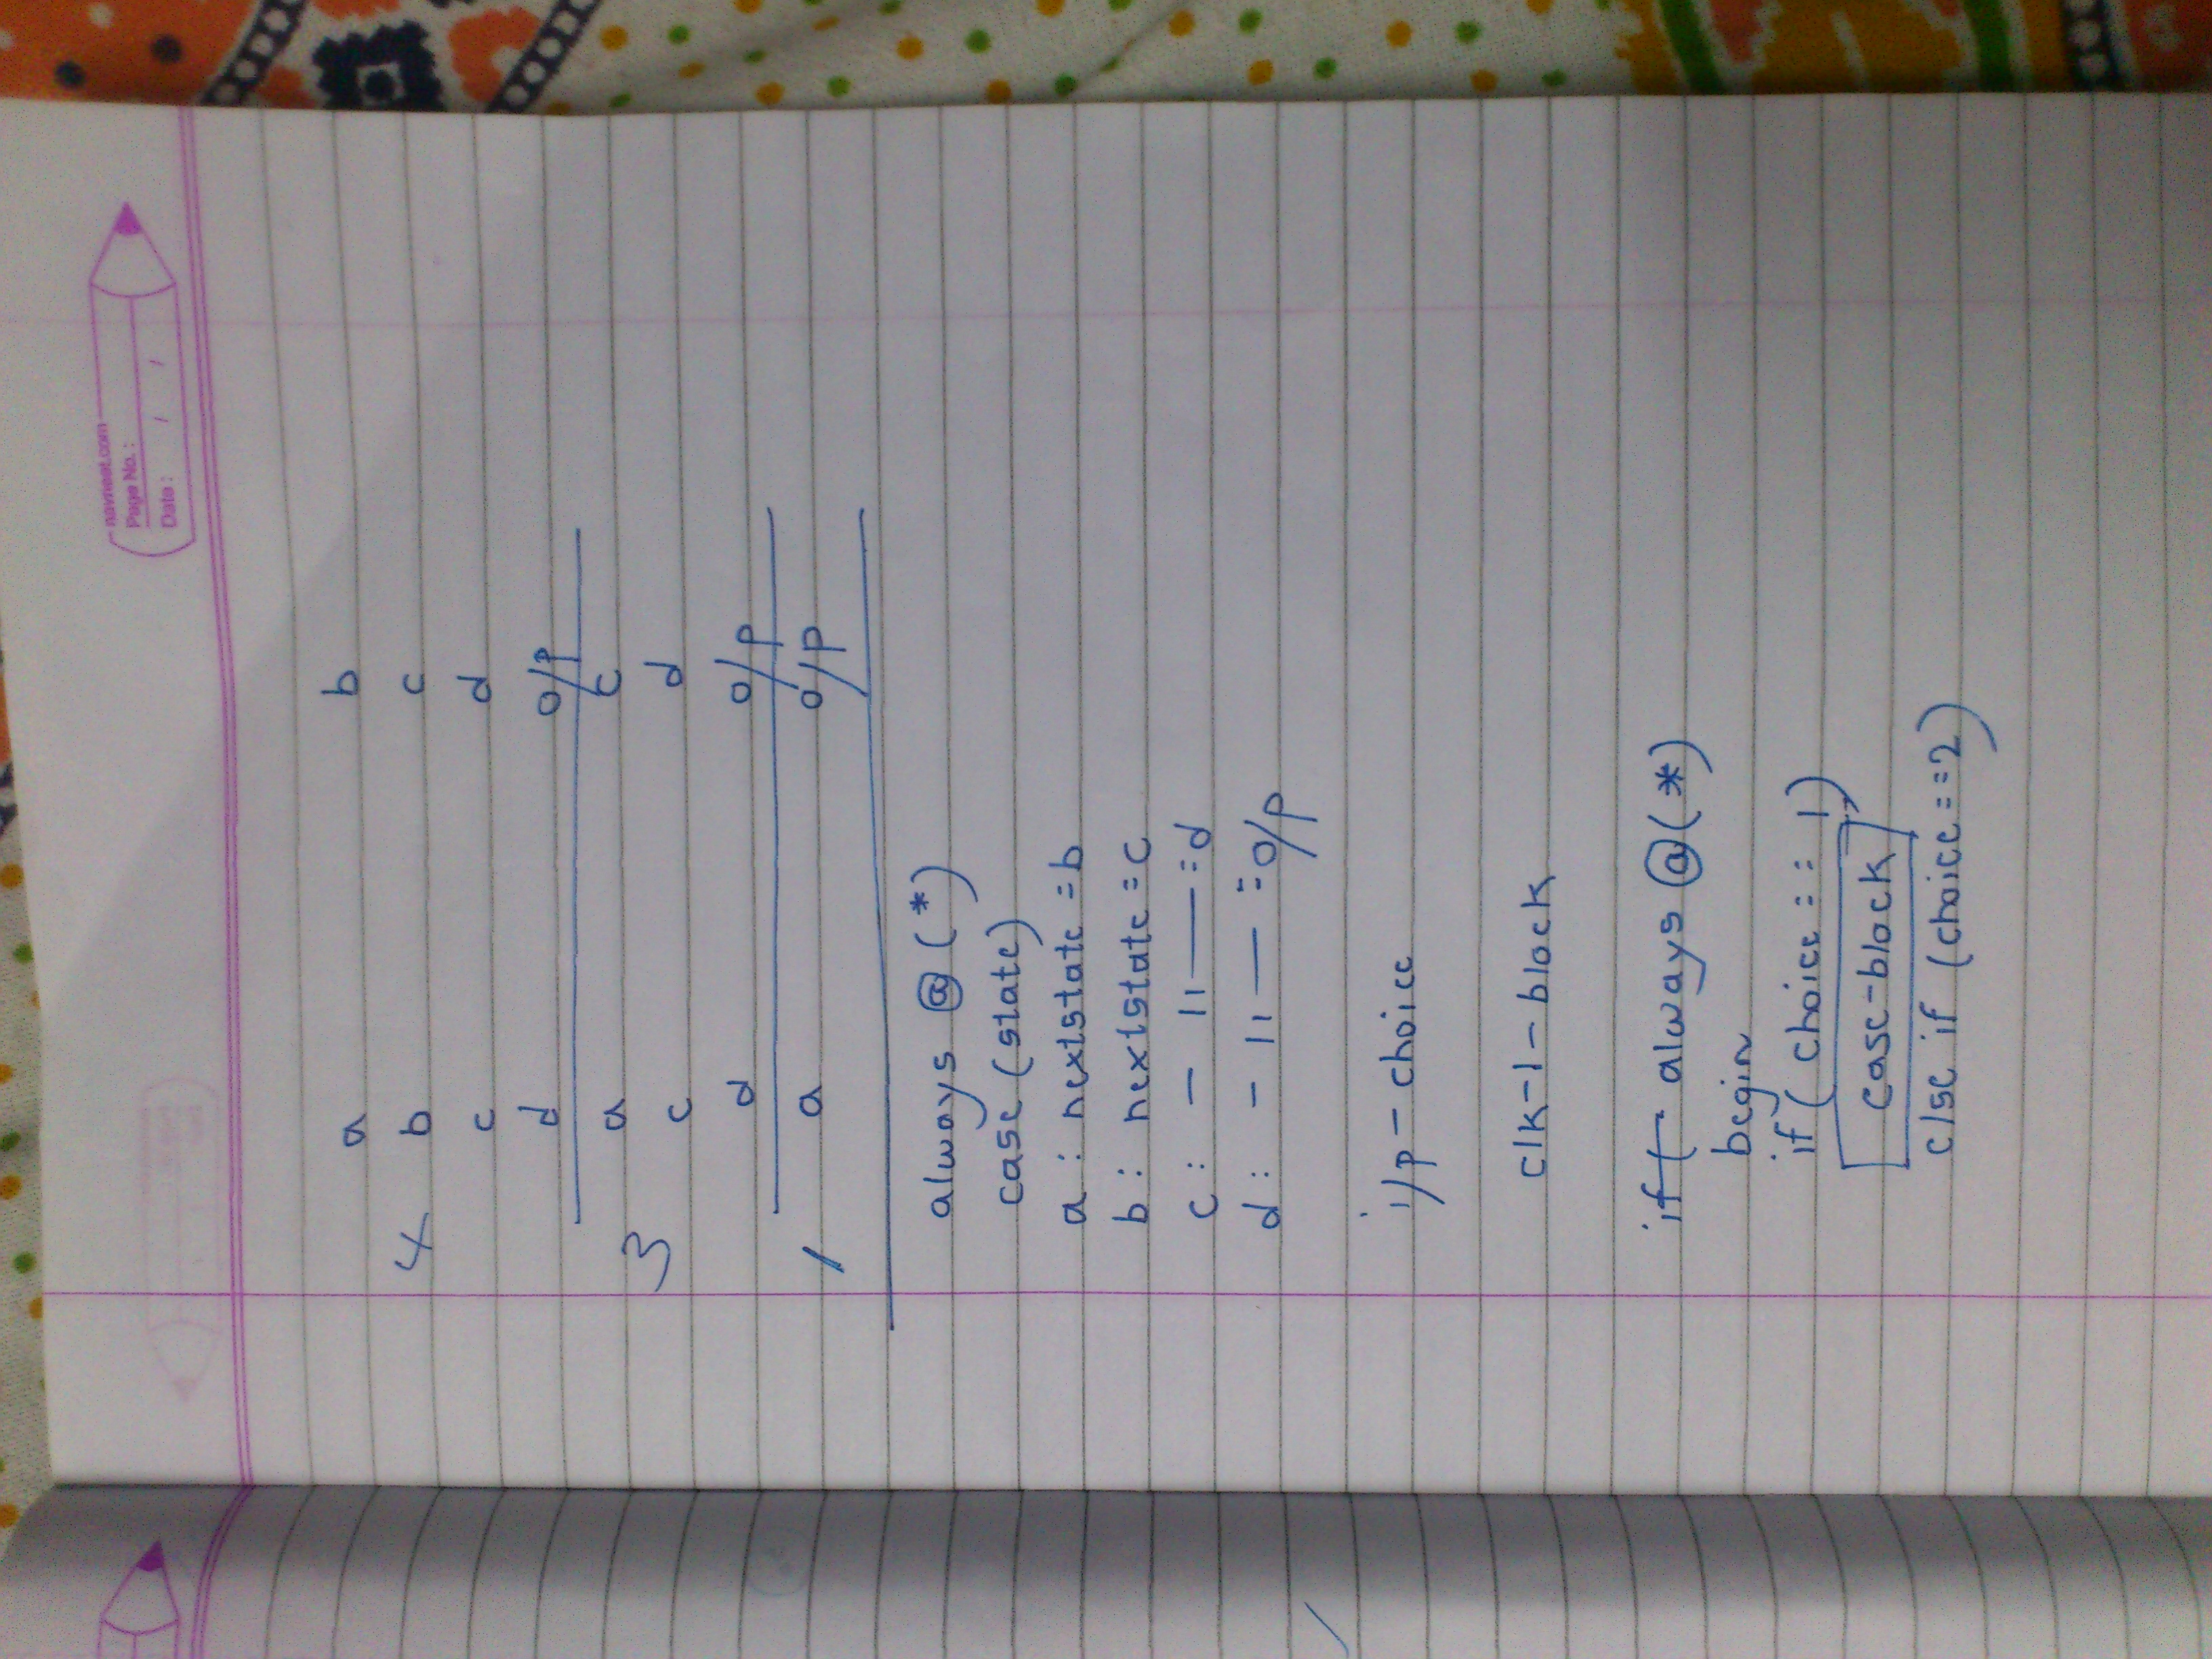 navneet.com
Page No.:
Date: / /
a b
4 b c
c d
d o/p
a c
3 c d
d o/p
1 a o/p
always @(*)
case (state)
a : nextstate = b
b : nextstate = c
c : - 11 — = d
d : - 11 — = o/p
i/p - choice
clk-1-block
if ( always @(*)
begin
if (choice == 1)
case-block
else if (choice == 2)